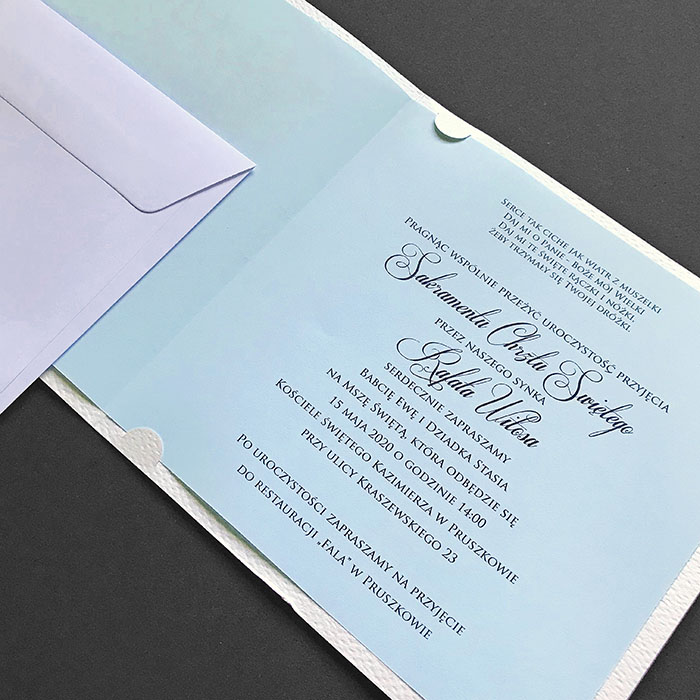 Serce tak ciche jak wiatr z muszelki
Daj mi o Panie - Boże mój wielki
Daj mi te święte rączki i nóżki,
żeby trzymały się Twojej dróżki.
Pragnąc wspólnie przeżyć uroczystość przyjęcia
Sakramentu Chrztu Świętego
przez naszego synka
Rafała Witosa
serdecznie zapraszamy
Babcię Ewę i Dziadka Stasia
na Mszę Świętą, która odbędzie się
15 maja 2020 o godzinie 14:00
Kościele Świętego Kazimierza w Pruszkowie
przy ulicy Kraszewskiego 23
Po uroczystości zapraszamy na przyjęcie
do restauracji „Fala" w Pruszkowie